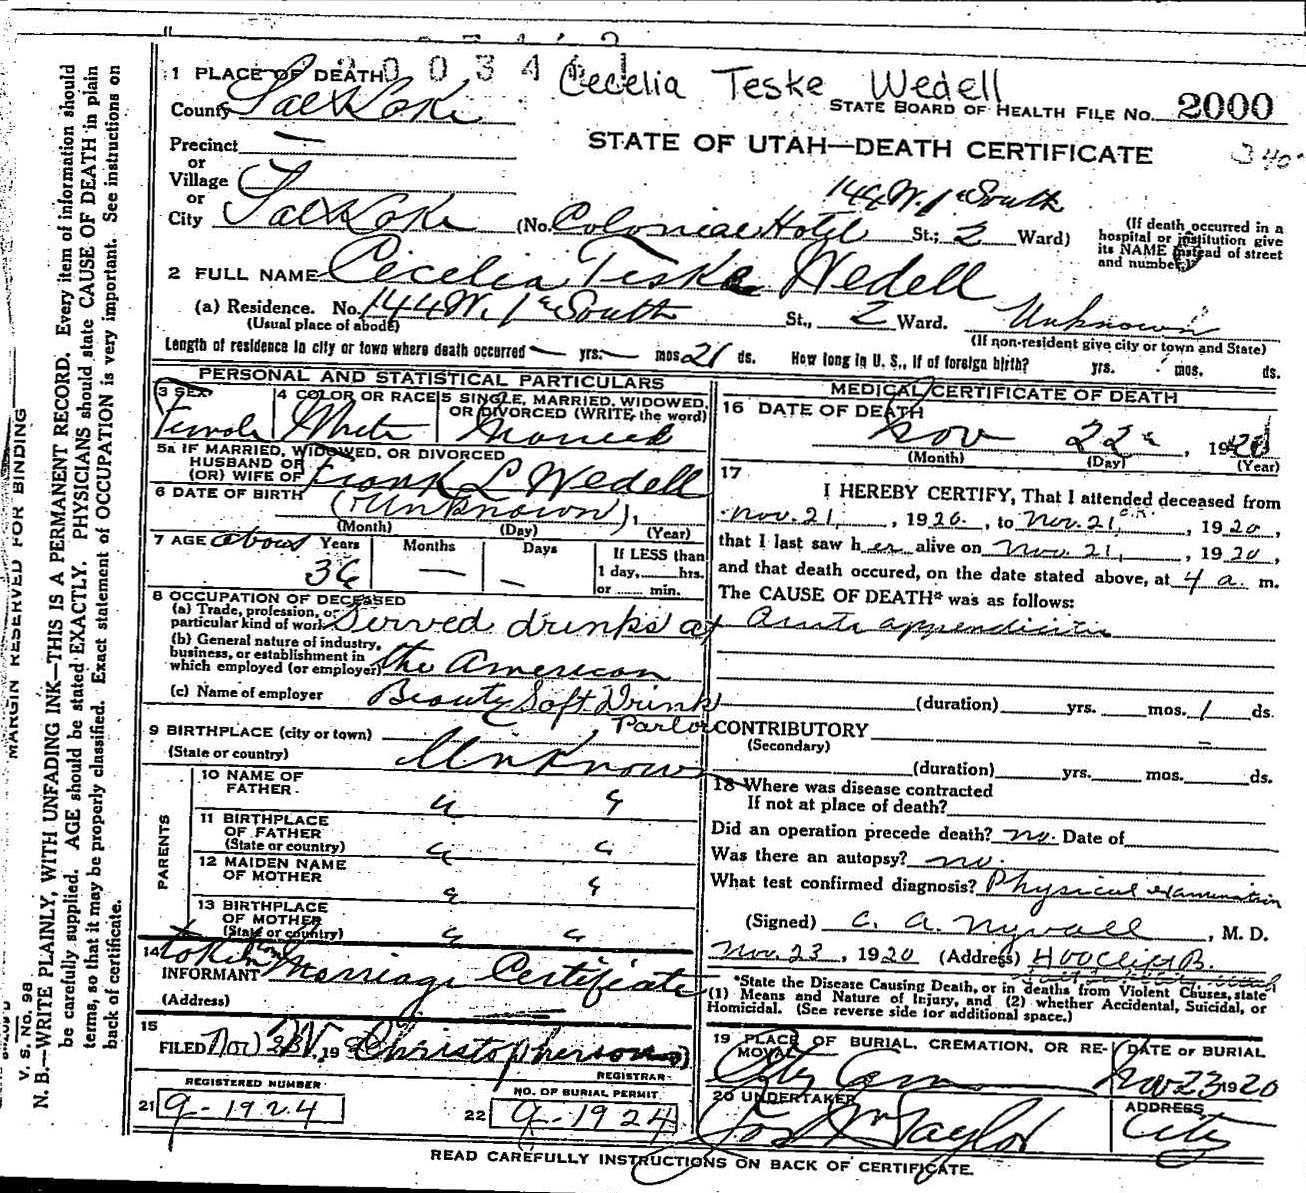 MARGIN RESERVED FOR BINDING
V. S. No. 98
N. B.—WRITE PLAINLY, WITH UNFADING INK—THIS IS A PERMANENT RECORD. Every item of information should
be carefully supplied. AGE should be stated EXACTLY. PHYSICIANS should state CAUSE OF DEATH in plain
terms, so that it may be properly classified. Exact statement of OCCUPATION is very important. See instructions on
back of certificate.
Cecelia Teske Wedell
1 PLACE OF DEATH
STATE BOARD OF HEALTH FILE No. 2000
County Salt Lake
STATE OF UTAH—DEATH CERTIFICATE
340
Precinct —
or
Village
or
144 W. 1st South
City Salt Lake (No. Colonial Hotel St.; 2 Ward)
(If death occurred in a
hospital or institution give
its NAME instead of street
and number)
2 FULL NAME Cecelia Teske Wedell
(a) Residence. No. 144 W. 1st South St., 2 Ward. Unknown
(Usual place of abode)
(If non-resident give city or town and State)
Length of residence in city or town where death occurred — yrs. — mos. 21 ds. How long in U. S., if of foreign birth? yrs. mos. ds.
PERSONAL AND STATISTICAL PARTICULARS
3 SEX
Female
4 COLOR OR RACE
White
5 SINGLE, MARRIED, WIDOWED,
OR DIVORCED (WRITE the word)
Married
5a IF MARRIED, WIDOWED, OR DIVORCED
HUSBAND OF
(OR) WIFE OF Frank L Wedell
6 DATE OF BIRTH (Unknown)
(Month) (Day) (Year)
7 AGE about Years Months Days
36 — —
If LESS than
1 day, hrs.
or min.
8 OCCUPATION OF DECEASED
(a) Trade, profession, or
particular kind of work Served drinks at
(b) General nature of industry,
business, or establishment in
which employed (or employer) the American
(c) Name of employer Beauty Soft Drink
Parlor
9 BIRTHPLACE (city or town)
(State or country) Unknown
PARENTS
10 NAME OF
FATHER
11 BIRTHPLACE
OF FATHER
(State or country)
12 MAIDEN NAME
OF MOTHER
13 BIRTHPLACE
OF MOTHER
(State or country)
14 taken from
INFORMANT Marriage Certificate
(Address)
15
FILED Nov 23, 19 Christopherson
REGISTRAR
REGISTERED NUMBER
21 9-1924
NO. OF BURIAL PERMIT
22 9-1924
MEDICAL CERTIFICATE OF DEATH
16 DATE OF DEATH
Nov 22, 1920
(Month) (Day) (Year)
17
I HEREBY CERTIFY, That I attended deceased from
Nov. 21, 1920, to Nov. 21, 1920,
that I last saw her alive on Nov. 21, 1920,
and that death occured, on the date stated above, at 4 a. m.
The CAUSE OF DEATH* was as follows:
Acute appendicitis
(duration) yrs. mos. 1 ds.
CONTRIBUTORY —
(Secondary)
(duration) yrs. mos. ds.
18 Where was disease contracted
If not at place of death?
Did an operation precede death? no. Date of
Was there an autopsy? no.
What test confirmed diagnosis? Physical examination
(Signed) C. A. Nyvall, M. D.
Nov. 23, 1920 (Address)
*State the Disease Causing Death, or in deaths from Violent Causes, state
(1) Means and Nature of Injury, and (2) whether Accidental, Suicidal, or
Homicidal. (See reverse side for additional space.)
19 PLACE OF BURIAL, CREMATION, OR RE-
MOVAL
City Cem
DATE OF BURIAL
Nov 23 1920
20 UNDERTAKER
Jos Wm Taylor
ADDRESS
City
READ CAREFULLY INSTRUCTIONS ON BACK OF CERTIFICATE.